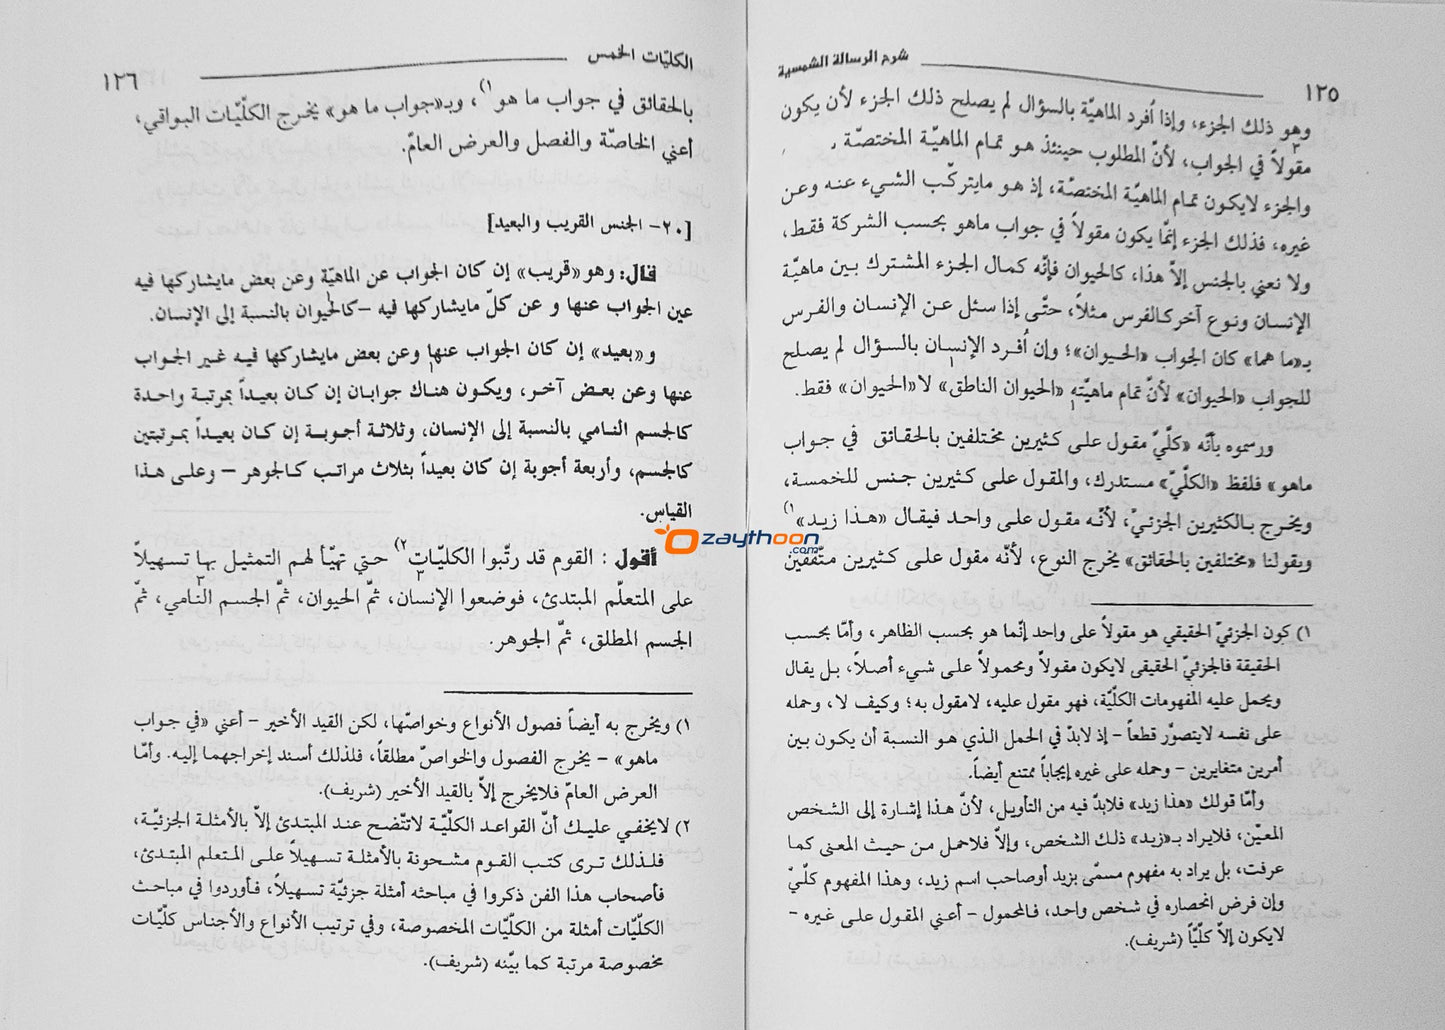 شرح الرسالة الشمسية
١٢٥
وهو ذلك الجزء، وإذا أُفرد الماهيّة بالسؤال لم يصلح ذلك الجزء لأن يكون
مقولاً في الجواب، لأنّ المطلوب حينئذ هو تمام الماهيّة المختصّة
والجزء لايكون تمام الماهيّة المختصّة، إذ هو مايتركّب الشيء عنه وعن
غيره، فذلك الجزء إنّما يكون مقولاً في جواب ماهو بحسب الشركة فقط،
ولا نعني بالجنس إلاّ هذا، كالحيوان فإنّه كمال الجزء المشترك بين ماهيّة
الإنسان ونوع آخر كالفرس مثلاً، حتّى إذا سئل عن الإنسان والفرس
بـ«ما هما» كان الجواب «الحيوان»؛ وإن أُفرد الإنسان بالسؤال لم يصلح
للجواب «الحيوان» لأنّ تمام ماهيّته «الحيوان الناطق» لا «الحيوان» فقط.
ورسموه بأنّه «كلّيّ مقول على كثيرين مختلفين بالحقائق في جواب
ماهو» فلفظ «الكلّيّ» مستدرك، والمقول على كثيرين جنس للخمسة،
ويخرج بالكثيرين الجزئيّ، لأنّه مقول على واحد فيقال «هذا زيد»١)
وبقولنا «مختلفين بالحقائق» يخرج النوع، لأنّه مقول على كثيرين متّفقين
١) كون الجزئيّ الحقيقي هو مقولاً على واحد إنّما هو بحسب الظاهر، وأمّا بحسب
الحقيقة فالجزئيّ الحقيقى لايكون مقولاً ومحمولاً على شيء أصلاً، بل يقال
ويحمل عليه المفهومات الكلّيّة، فهو مقول عليه، لامقول به؛ وكيف لا، وحمله
على نفسه لايتصوّر قطعاً - إذ لابدّ في الحمل الذي هو النسبة أن يكون بين
أمرين متغايرين - وحمله على غيره إيجاباً ممتنع أيضاً.
وأمّا قولك «هذا زيد» فلابدّ فيه من التأويل، لأنّ هذا إشارة إلى الشخص
المعيّن، فلايراد بـ«زيد» ذلك الشخص، وإلاّ فلاحمل من حيث المعنى كما
عرفت، بل يراد به مفهوم مسمّى بزيد أوصاحب اسم زيد، وهذا المفهوم كلّيّ
وإن فرض انحصاره في شخص واحد، فالمحمول - أعني المقول على غيره -
لايكون إلاّ كلّيّاً (شريف).
الكليّات الخمس
١٢٦
بالحقائق في جواب ما هو١)، وبـ«جواب ما هو» يخرج الكلّيّات البواقي،
أعني الخاصّة والفصل والعرض العامّ.
[٢٠- الجنس القريب والبعيد]
قال: وهو «قريب» إن كان الجواب عن الماهيّة وعن بعض مايشاركها فيه
عين الجواب عنها و عن كلّ مايشاركها فيه –كالحيوان بالنسبة إلى الإنسان.
و«بعيد» إن كان الجواب عنها وعن بعض مايشاركها فيه غير الجواب
عنها وعن بعض آخر، ويكون هناك جوابان إن كان بعيداً بمرتبة واحدة
كالجسم النامي بالنسبة إلى الإنسان، وثلاثة أجوبة إن كان بعيداً بمرتبتين
كالجسم، وأربعة أجوبة إن كان بعيداً بثلاث مراتب كالجوهر – وعلى هذا
القياس.
أقول : القوم قد رتّبوا الكليّات٢) حتي تهيّأ لهم التمثيل بها تسهيلاً
على المتعلّم المبتدئ، فوضعوا الإنسان، ثمّ الحيوان، ثمّ الجسم النامي، ثمّ
الجسم المطلق، ثمّ الجوهر.
١) ويخرج به أيضاً فصول الأنواع وخواصّها، لكن القيد الأخير - أعني «في جواب
ماهو» - يخرج الفصول والخواصّ مطلقاً، فلذلك أسند إخراجهما إليه. وأمّا
العرض العامّ فلايخرج إلاّ بالقيد الأخير (شريف).
٢) لايخفي عليك أنّ القواعد الكلّيّة لاتتّضح عند المبتدئ إلاّ بالأمثلة الجزئيّة،
فلذلك ترى كتب القوم مشحونة بالأمثلة تسهيلاً على المتعلم المبتدئ،
فأصحاب هذا الفن ذكروا في مباحثه أمثلة جزئيّة تسهيلاً، فأوردوا في مباحث
الكلّيّات أمثلة من الكلّيّات المخصوصة، وفي ترتيب الأنواع والأجناس كلّيّات
مخصوصة مرتبة كما بيّنه (شريف).
Ozaythoon
.com